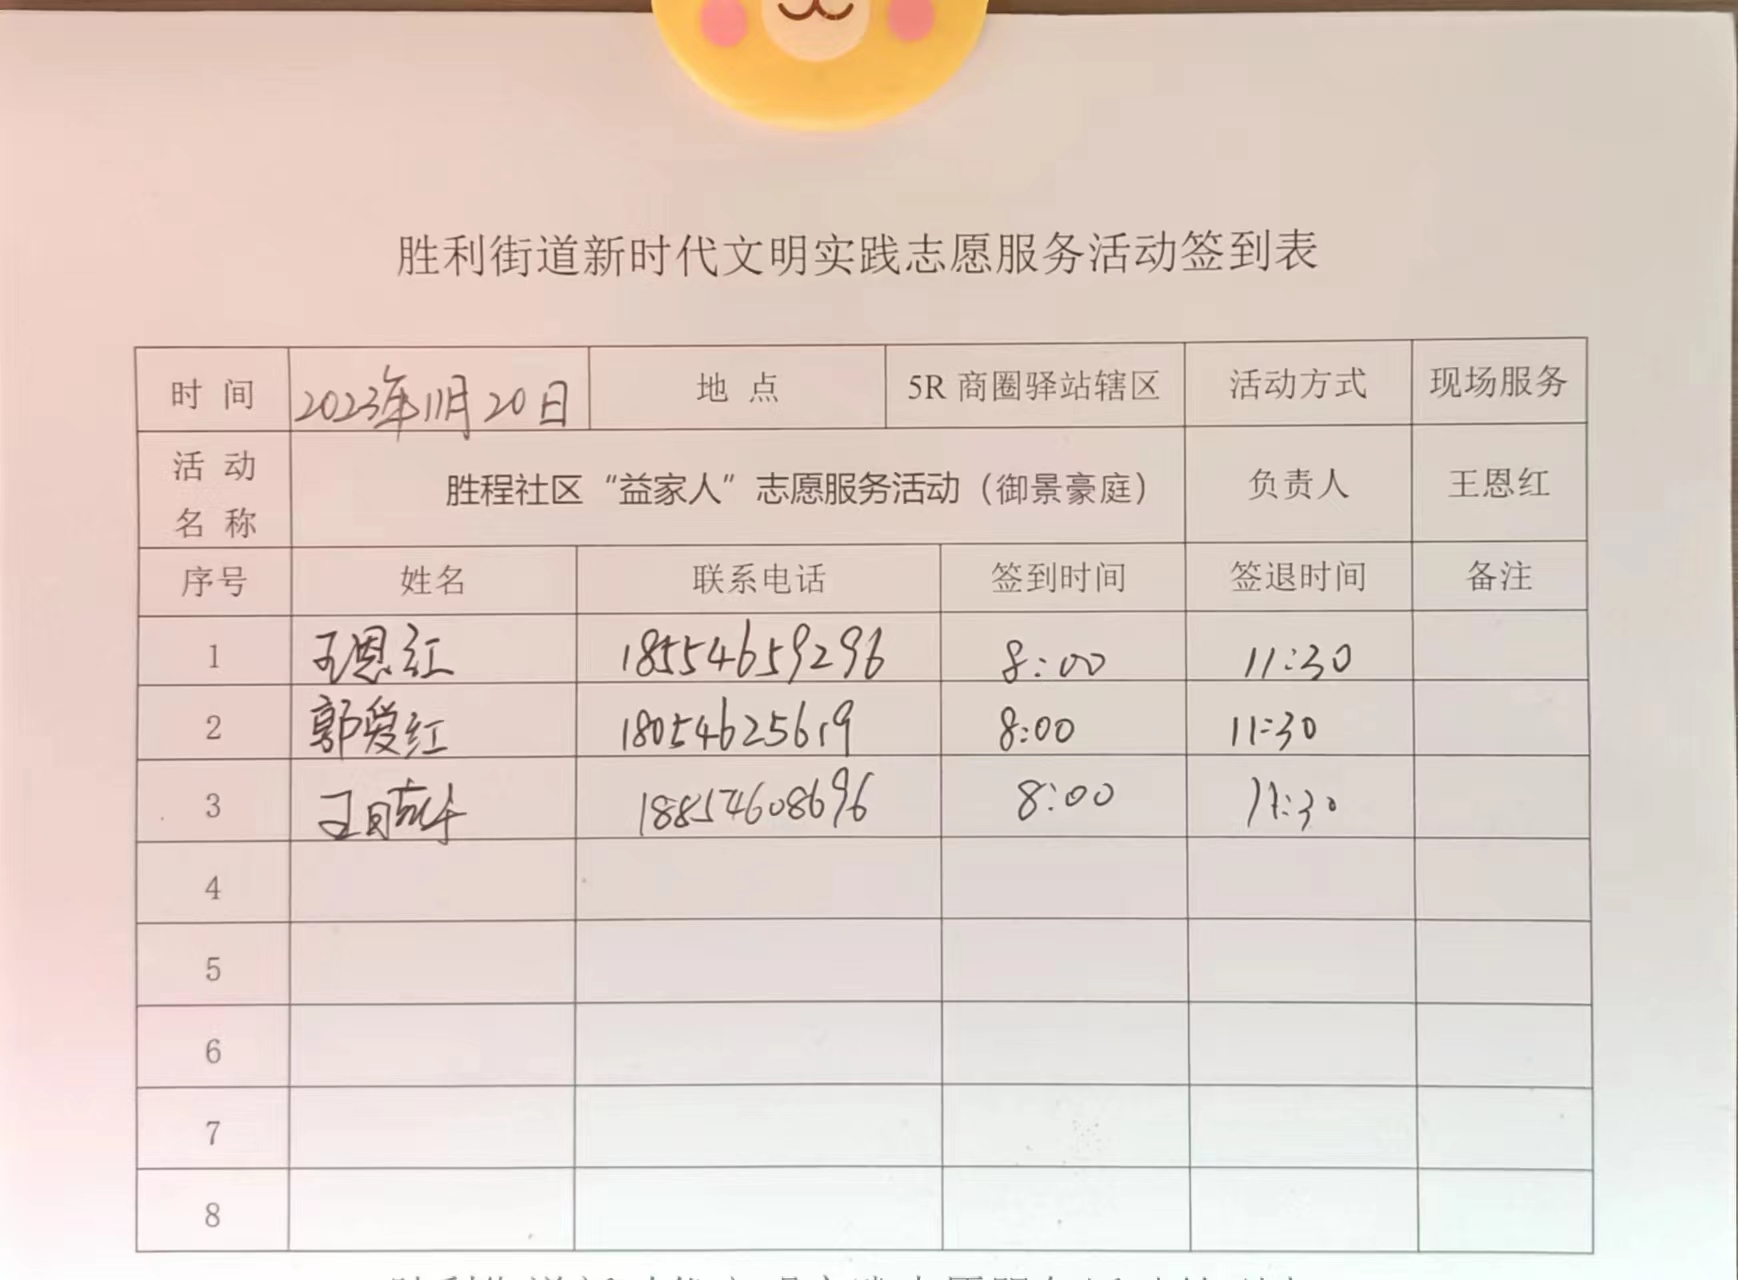 胜利街道新时代文明实践志愿服务活动签到表
时 间 2023年11月20日 地 点 5R 商圈驿站辖区 活动方式 现场服务
活 动 名 称 胜程社区“益家人”志愿服务活动（御景豪庭） 负责人 王恩红
序号 姓名 联系电话 签到时间 签退时间 备注
1 王恩红 18554659296 8:00 11:30
2 郭爱红 18054625619 8:00 11:30
3 18854608696 8:00 11:30
4
5
6
7
8